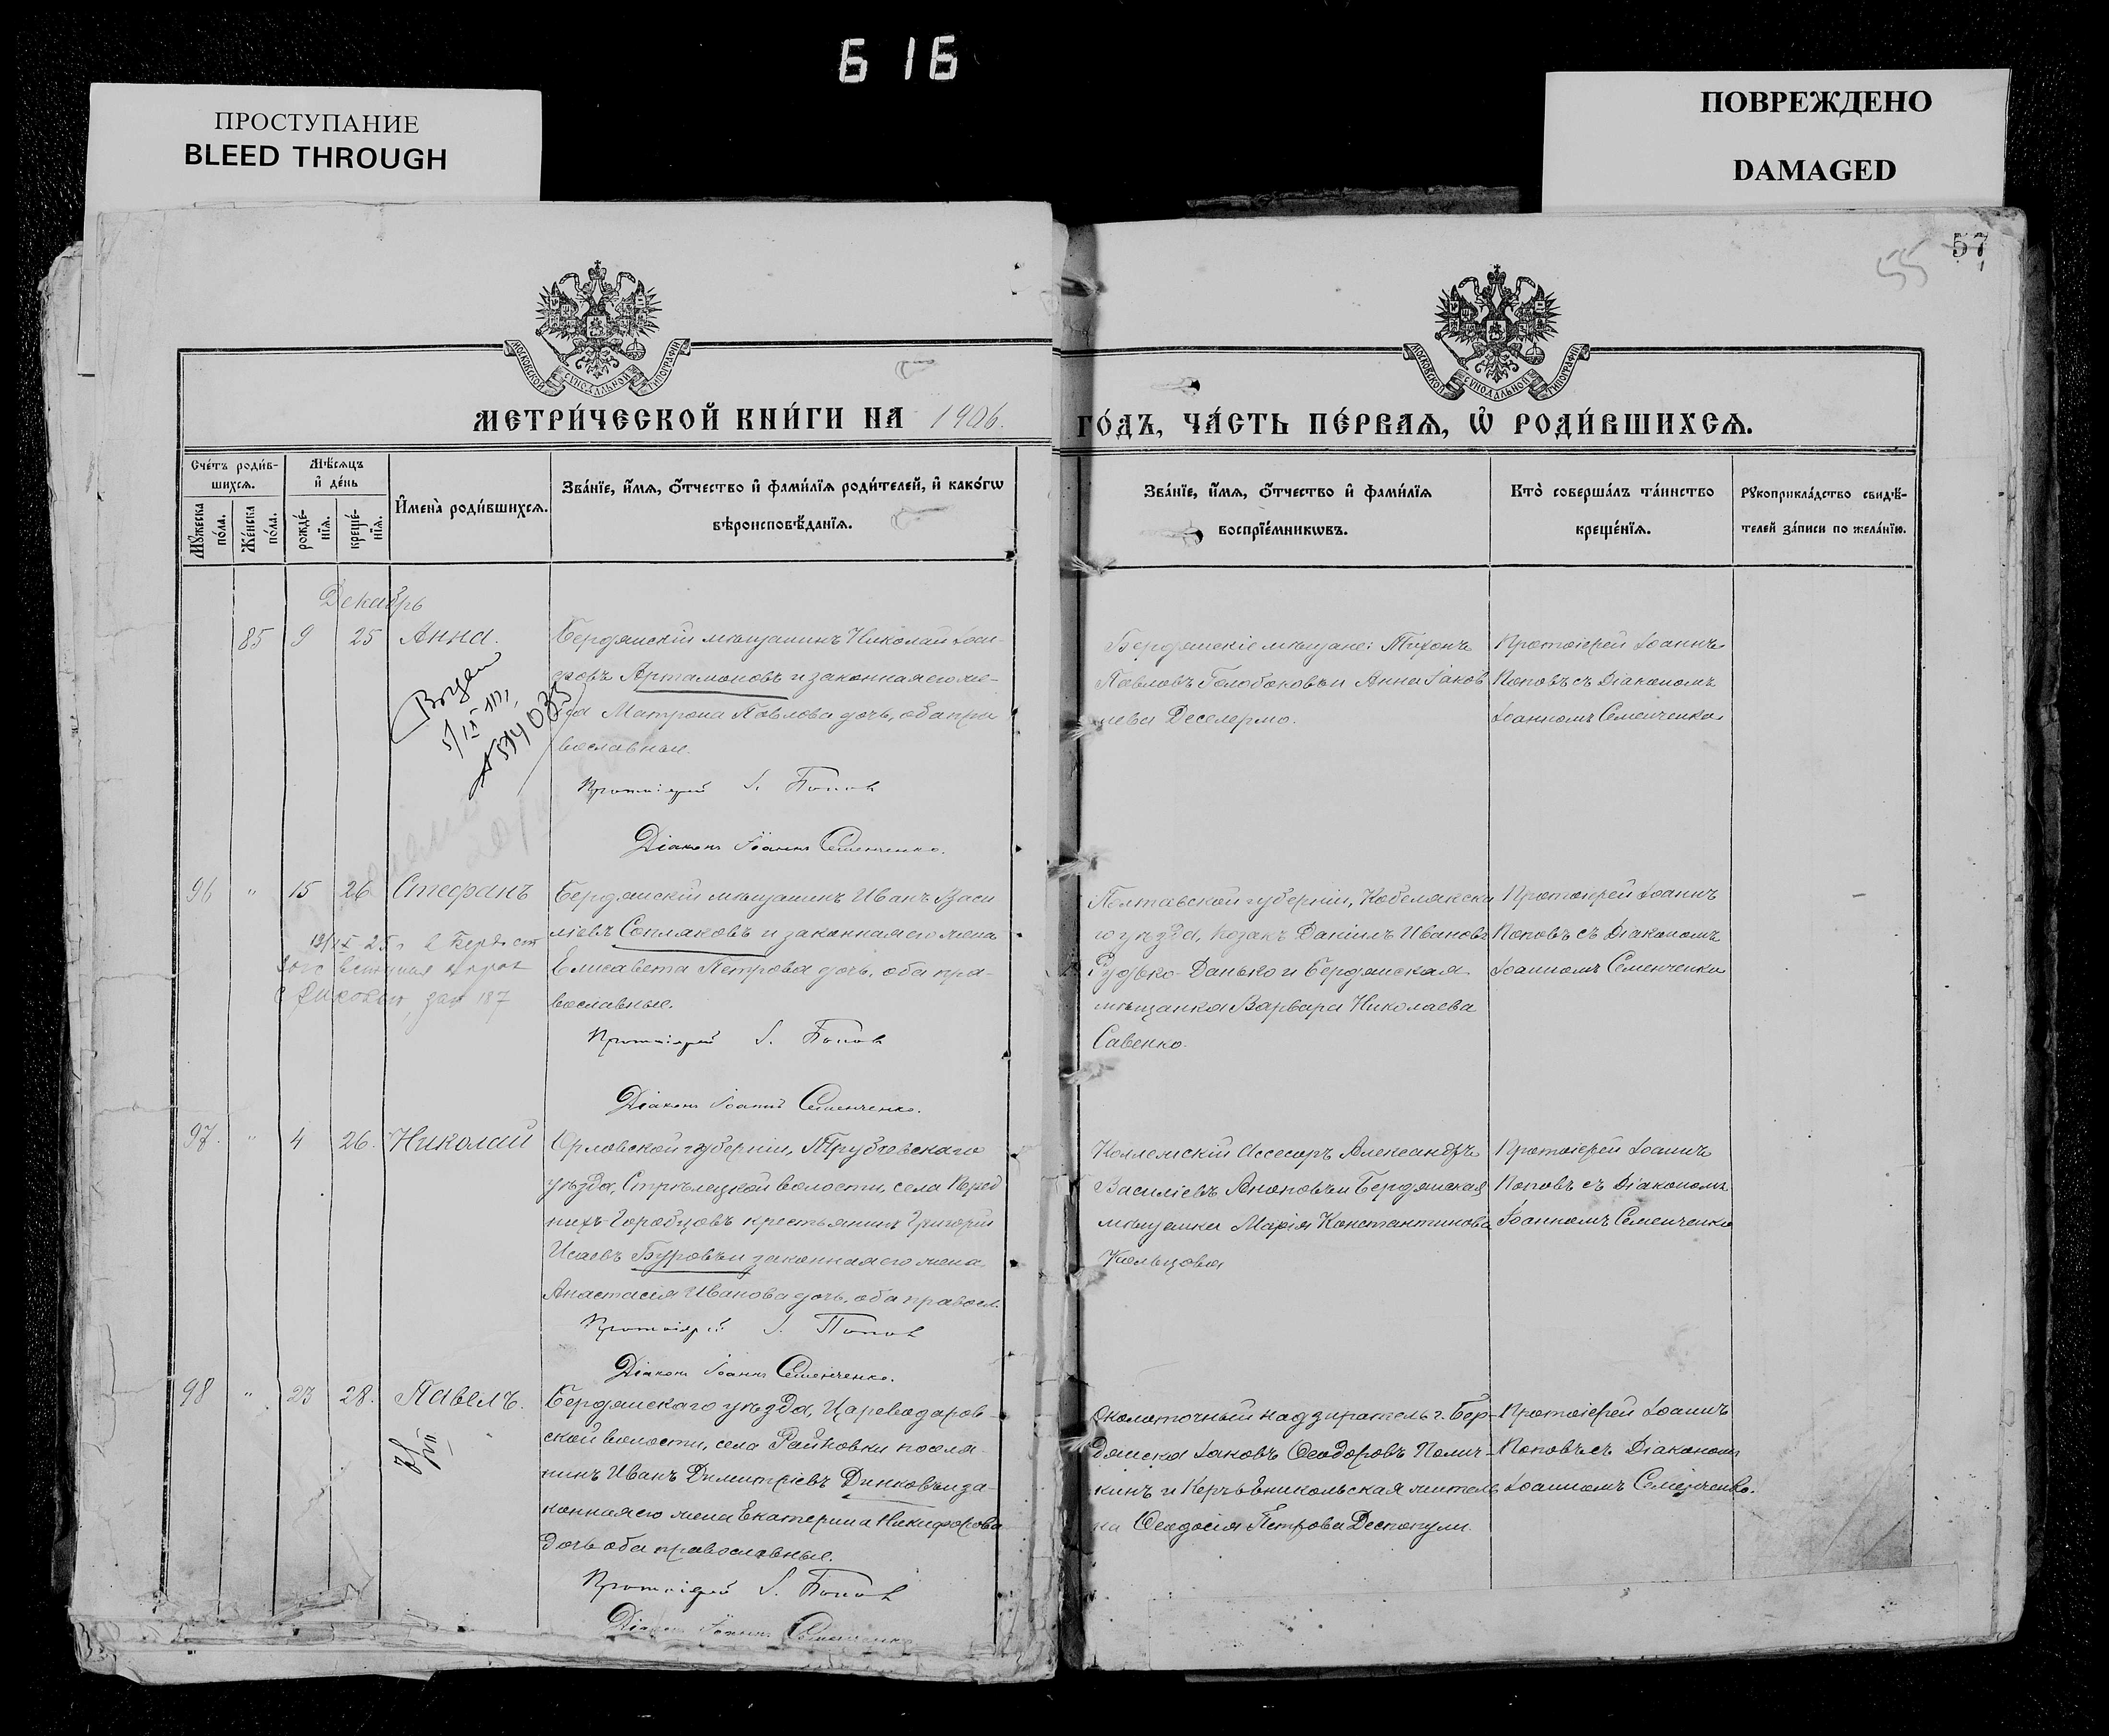 616
ПРОСТУПАНИЕ
BLEED THROUGH
ПОВРЕЖДЕНО
DAMAGED
57
55
МОСКОВСКОЙ СѴНОДАЛЬНОЙ ТИПОГРАФІИ
МОСКОВСКОЙ СѴНОДАЛЬНОЙ ТИПОГРАФІИ
МЕТРИ́ЧЕСКОЙ КНИ́ГИ НА 1906.
ГО́ДЪ, ЧА́СТЬ ПЕ́РВАѦ, Ѡ҆ РОДИ́ВШИХСѦ.
Сче́тъ роди́в-
шихсѧ.
Мѣ́сѧцъ
и҆ де́нь
Мꙋ́жеска
по́ла.
Же́нска
по́ла.
рожде́-
нїѧ.
креще́-
нїѧ.
И҆мена̀ роди́вшихсѧ.
Зва́нїе, и҆́мѧ, ѻ҆́тчество и҆ фами́лїѧ роди́телей, и҆ како́гѡ
вѣроисповѣ́данїѧ.
Зва́нїе, и҆́мѧ, ѻ҆́тчество и҆ фами́лїѧ
воспрїе́мникѡвъ.
Кто̀ соверша́лъ та́инство
креще́нїѧ.
Рꙋкоприкла́дство свидѣ́-
телей за́писи по жела́нїю.
Декабрь
85 9 25 Анна.
Бердянскій мѣщанинъ Николай Іоси-
фовъ Артамоновъ и законная его же-
на Матрона Павлова дочь, оба пра
вославные.
Протоіерей І. Попов
Діаконъ Іоаннъ Семенченко.
Бердянскіе мѣщане: Тихонъ
Павловъ Голобоковъ и Анна Іаков
лева Деселермо.
Протоіерей Іоаннъ
Поповъ съ Діакономъ
Іоанномъ Семенченко
96 " 15 26 Стефанъ
Бердянскій мѣщанинъ Иванъ Васи
ліевъ Сопляковъ и законная его жена
Елисавета Петрова дочь, оба пра-
вославные.
Протоіерей І. Попов
Діаконъ Іоаннъ Семенченко.
Полтавской губерніи, Кобелякска
го уѣзда, козакъ Даніилъ Ивановъ
Рудько-Данько и Бердянская
мѣщанка Варвара Николаева
Савенко.
Протоіерей Іоаннъ
Поповъ съ Діакономъ
Іоанномъ Семенченко
97. " 4 26. Николай
Орловской губерніи, Трубчевскаго
уѣзда, Стрѣлецкой волости, села Перед
нихъ-Горобцовъ крестьянинъ Григорій
Исаевъ Буровъ и законная его жена
Анастасія Иванова дочь, оба правосл.
Протоіерей І. Попов
Діаконъ Іоаннъ Семенченко.
Коллежскій Ассесоръ Александръ
Василіевъ Аноповъ и Бердянская
мѣщанка Марія Константинова
Кольцова
Протоіерей Іоаннъ
Поповъ съ Діакономъ
Іоанномъ Семенченко
98 " 23 28. Павелъ.
Бердянскаго уѣзда, Цареводаров-
ской волости, села Райновки поселя-
нинъ Иванъ Димитріевъ Динковъ и за-
конная его жена Екатерина Никифорова
дочь оба православные.
Протоіерей І. Попов
Діаконъ Іоаннъ Семенченко
Околоточный надзиратель г. Бер-
дянска Іаковъ Ѳеодоровъ
и Керчьеникольская жителъ
ка Ѳеодосія Петрова Деспотули.
Протоіерей Іоаннъ
Поповъ съ Діаконом
Іоанномъ Семенченко.